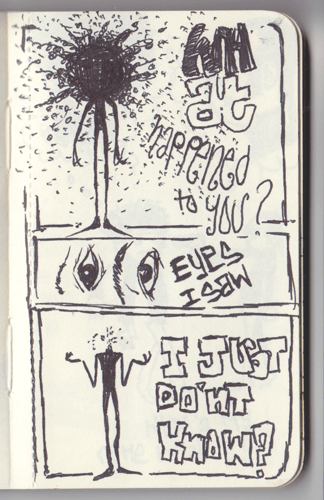 WH
at
happened
to you?
EYES
I SAW
I JUST
DO'NT
KNOW?